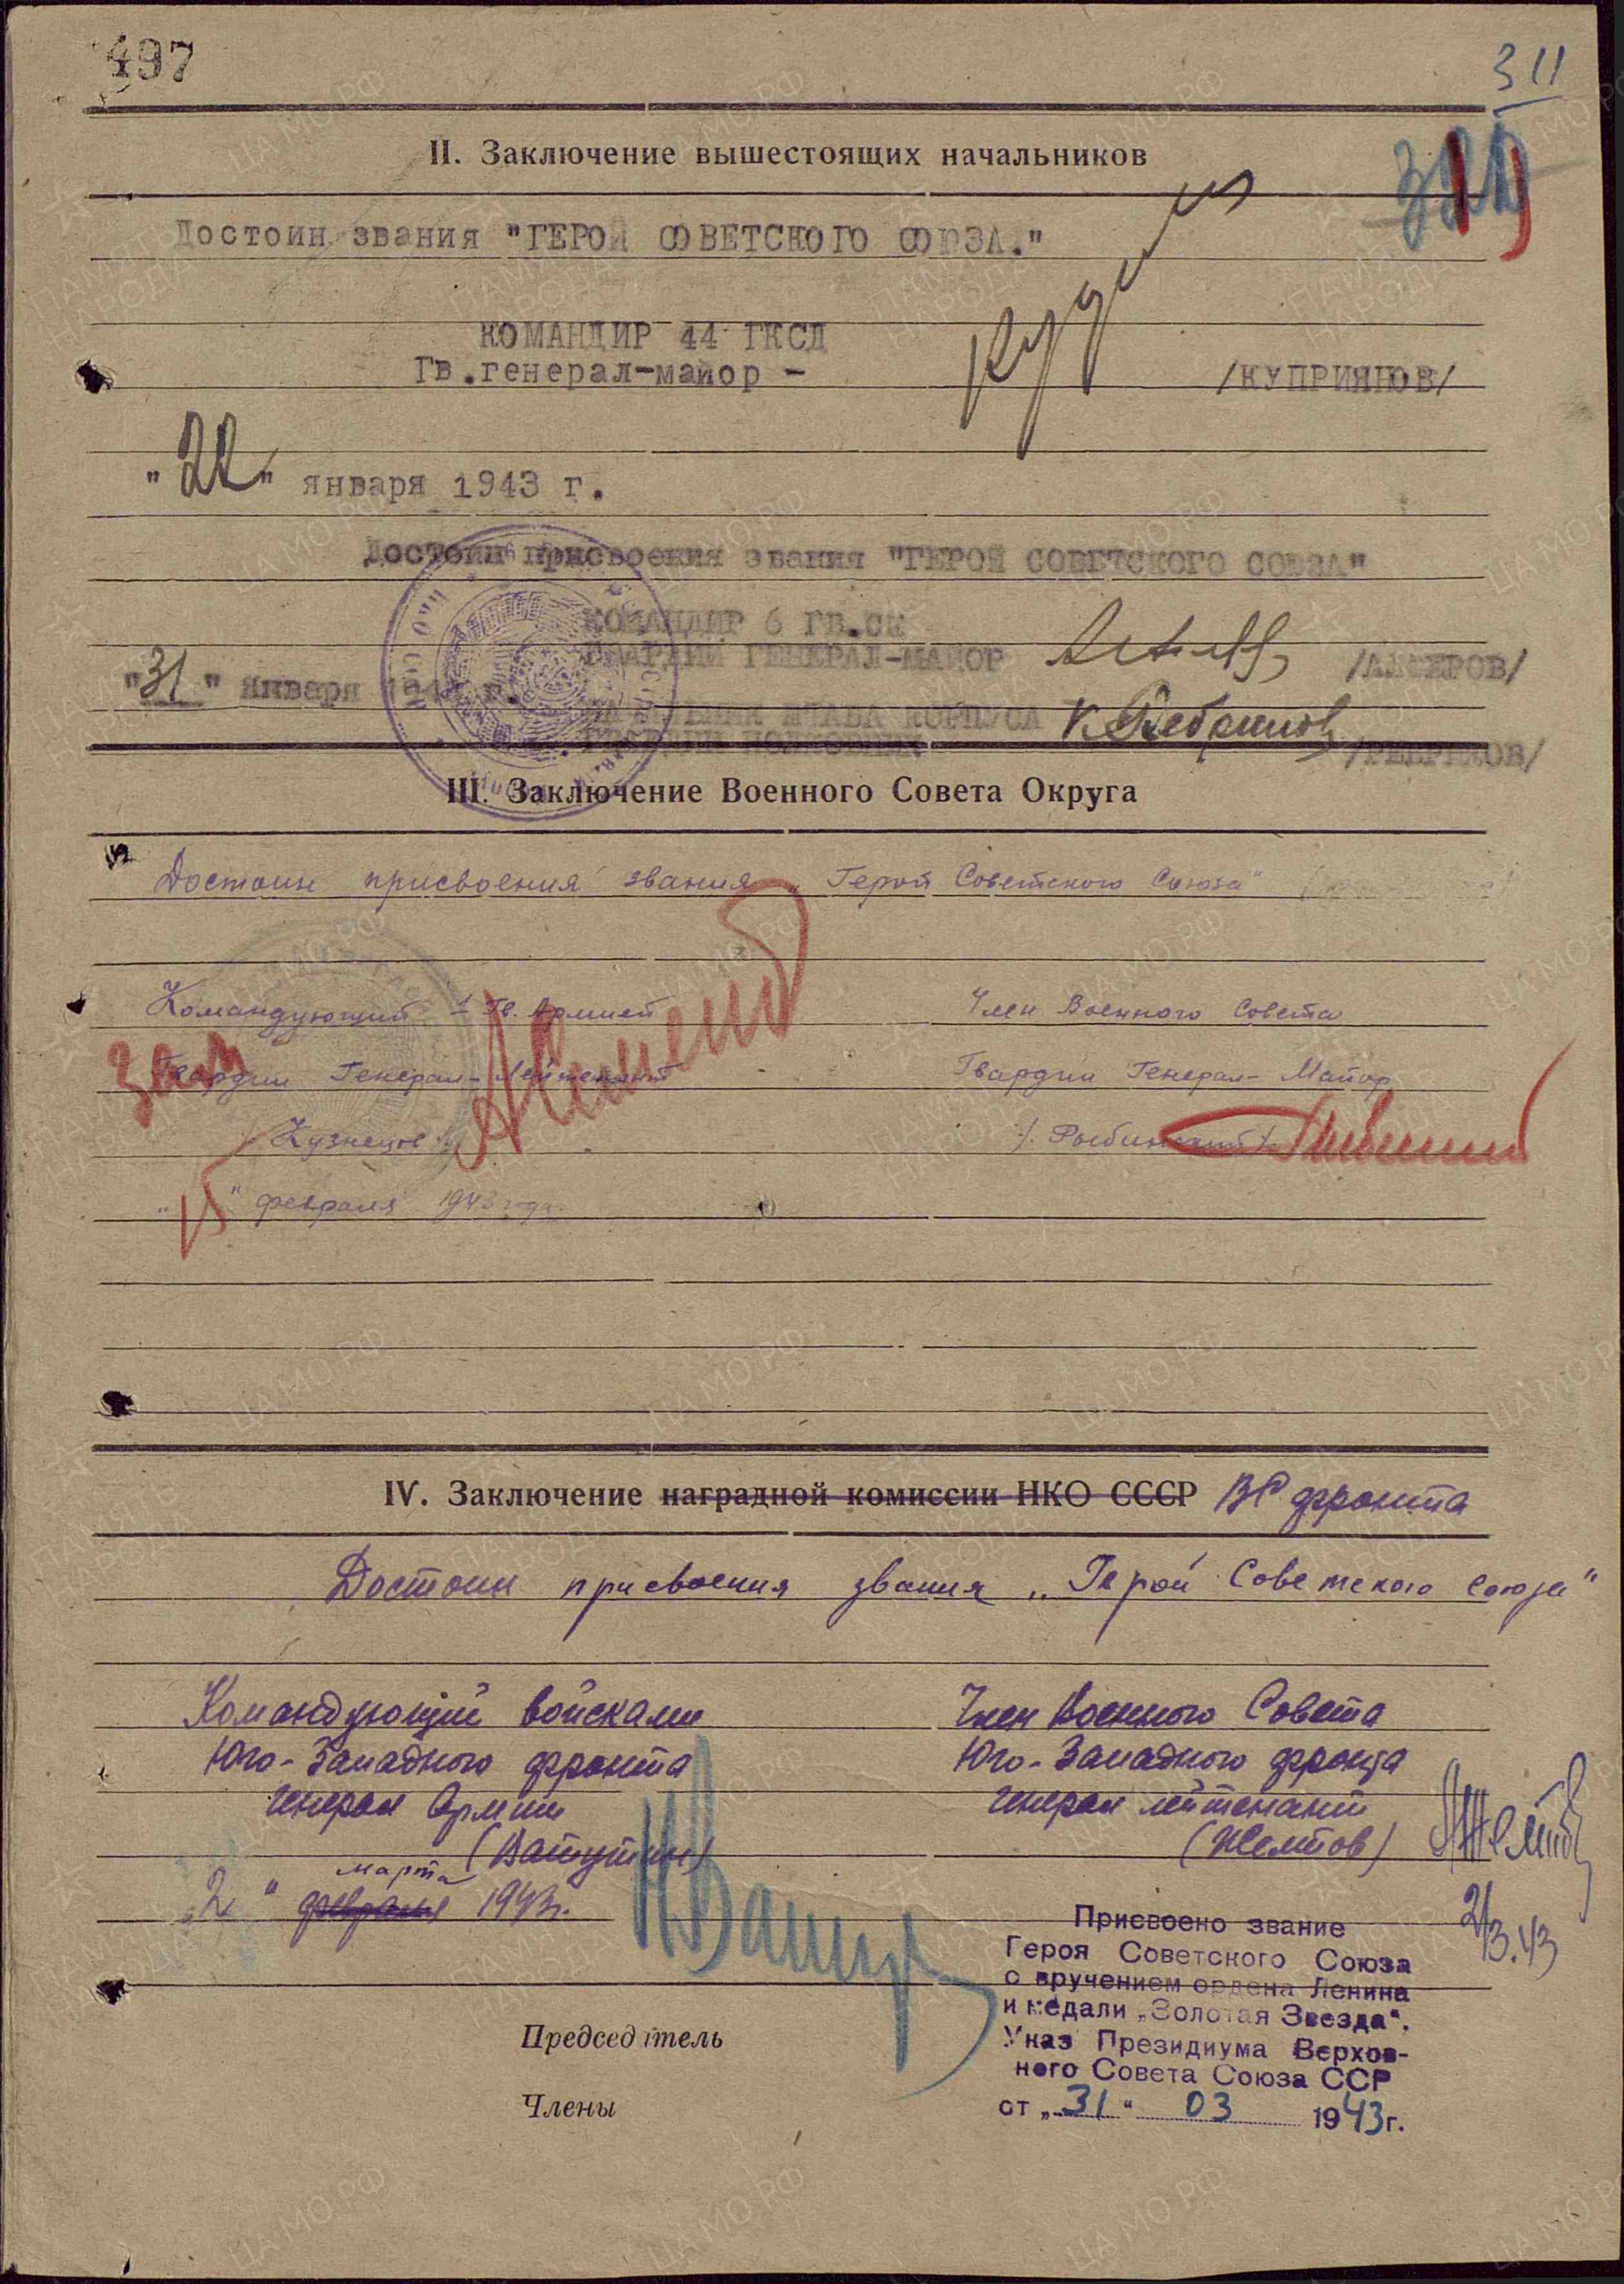 497
311
II. Заключение вышестоящих начальников
Достоин звания "ГЕРОЙ СОВЕТСКОГО СОЮЗА."
КОМАНДИР 44 ГКСД
Гв.генерал-майор -
/КУПРИЯНОВ/
"22" января 1943 г.
Достоин присвоения звания "ГЕРОЙ СОВЕТСКОГО СОЮЗА"
КОМАНДИР 6 ГВ.СК
ГВАРДИИ ГЕНЕРАЛ-МАЙОР /АЛФЕРОВ/
"31" января 1943 г.
НАЧАЛЬНИК ШТАБА КОРПУСА
ГВАРДИИ ПОЛКОВНИК
III. Заключение Военного Совета Округа
Достоин присвоения звания „Герой Советского Союза"
Командующий 1 Гв. Армией
Член Военного Совета
зам
Гвардии Генерал-Лейтенант
Гвардии Генерал-Майор
/Кузнецов/
"15" февраля 1943 года
IV. Заключение наградной комиссии НКО СССР ВС фронта
Достоин присвоения звания „Герой Советского Союза"
Командующий войсками
Юго-Западного фронта
Генерал Армии
(Ватутин)
Член Военного Совета
Юго-Западного фронта
Генерал лейтенант
(Желтов)
марта
„2" февраля 1943г.
2/3.43
Присвоено звание
Героя Советского Союза
с вручением ордена Ленина
и медали „Золотая Звезда".
Указ Президиума Верхов-
ного Совета Союза ССР
от „31" 03 1943г.
Председатель
Члены